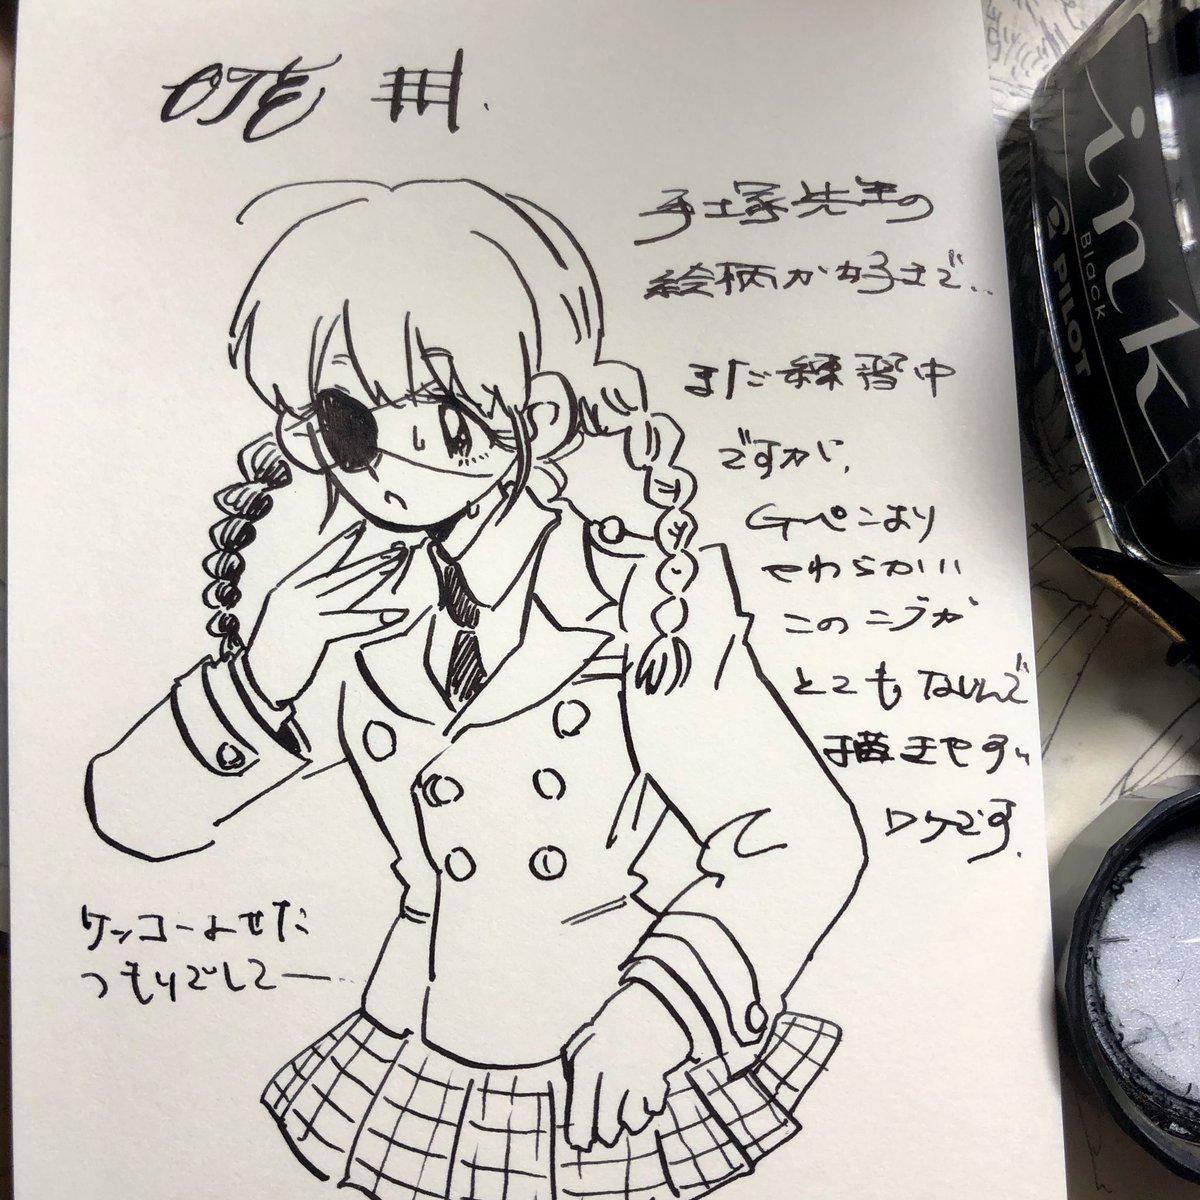 手塚先生の
絵柄が好きで..
まだ練習中
ですが、
Gペンより
やわらかい
このニブが
とてもなじんで
描きやすい
ワケです.
ケッコーよせた
つもりでしてー…
ink
Black
PILOT